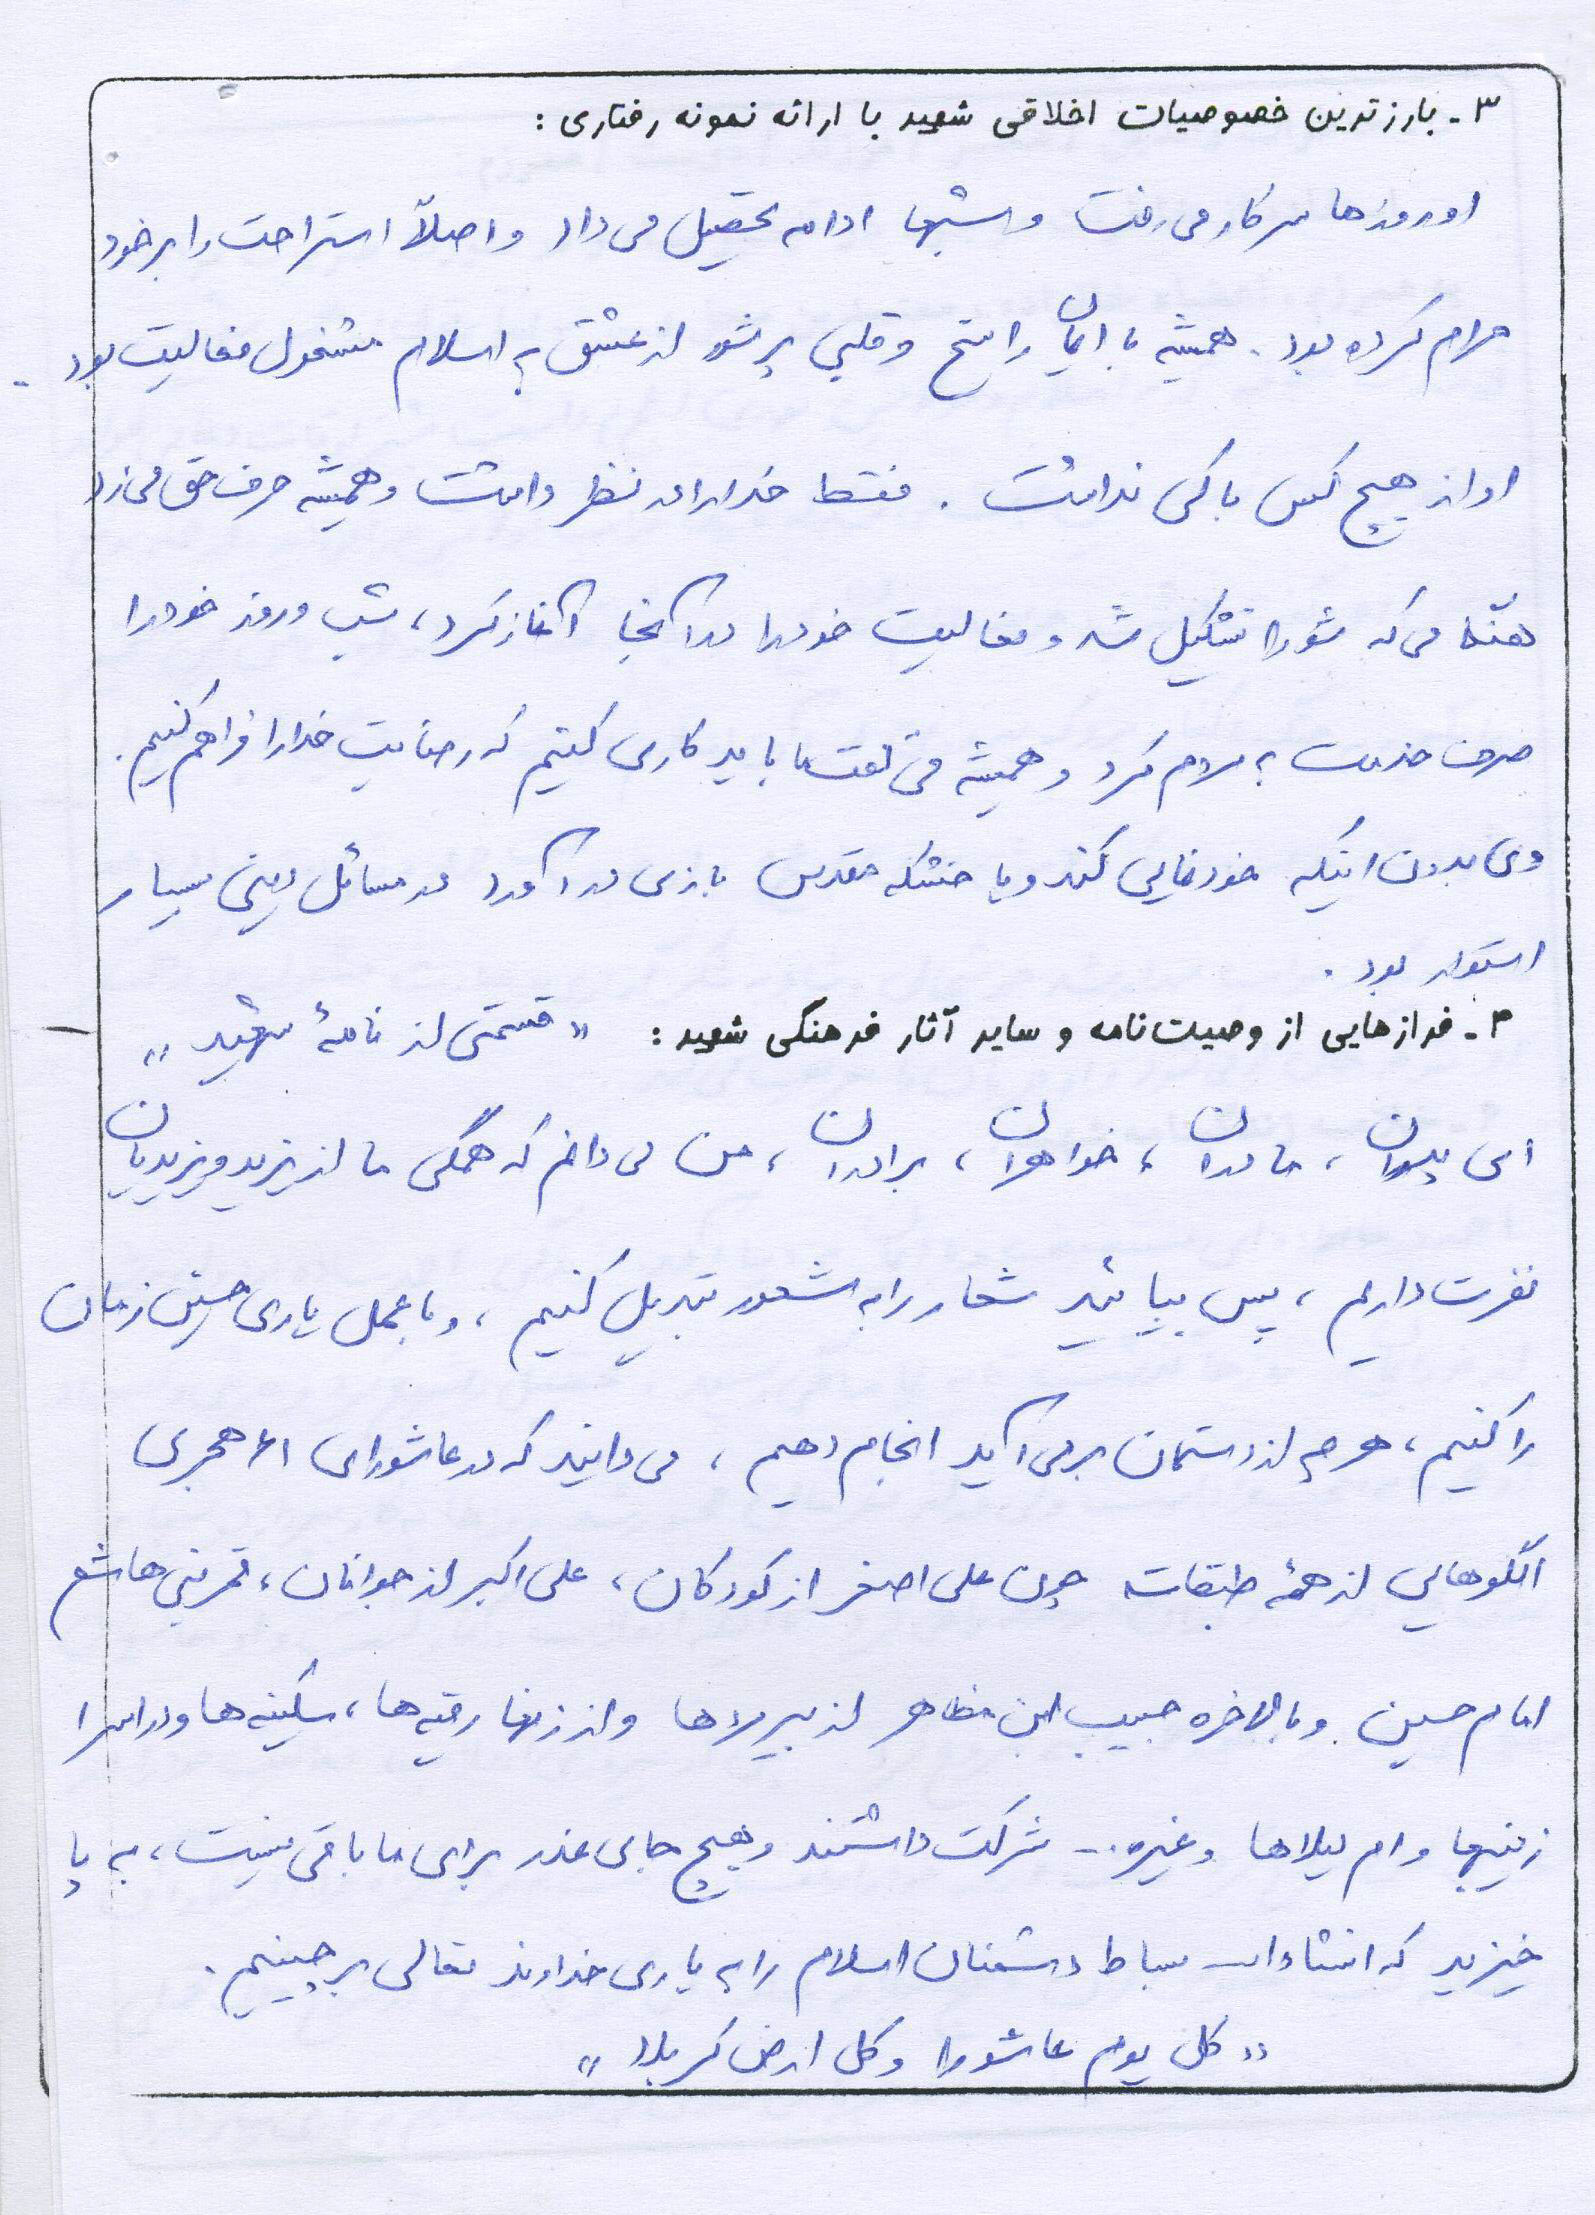 ۳- بارزترین خصوصیات اخلاقی شهید با ارائه نمونه رفتاری :
او روزها سرکار می رفت و شبها ادامه تحصیل می داد و اصلاً استراحت را بر خود
حرام کرده بود . همیشه با ایمان راسخ و قلبی پر شور از عشق به اسلام مشغول فعالیت بود .
او از هیچ کس باکی نداشت . فقط خدا را در نظر داشت و همیشه حرف حق می زد
هنگامی که شورا تشکیل شد و فعالیت خود را در آنجا آغاز کرد ، شب و روز خود را
صرف خدمت به مردم کرد و همیشه می گفت ما باید کاری کنیم که رضایت خدا را فراهم کنیم .
وی بدون اینکه خودنمایی کند و یا خشکه مقدس بازی درآورد در مسائل دینی بسیار
استوار بود .
۴- فرازهایی از وصیت نامه و سایر آثار فرهنگی شهید : « قسمتی از نامهٔ شهید »
ای پدران ، مادران ، خواهران ، برادران ، من می دانم که همگی ما از یزید و یزیدیان
نفرت داریم ، پس بیائید شعار را به شعور تبدیل کنیم ، و با عمل یاری حسین زمان
را کنیم ، هر چه از دستمان بر می آید انجام دهیم ، می دانید که در عاشورای ۶۱ هجری
الگوهایی از همهٔ طبقات چون علی اصغر از کودکان ، علی اکبر از جوانان ، قمر بنی هاشم
امام حسین و بالاخره حبیب ابن مظاهر از پیرمردها و از زنها رقیه ها ، سکینه ها و در اسرا
زینبها و ام لیلاها و غیره .. شرکت داشتند و هیچ جای عذر برای ما باقی نیست ، به پا
خیزید که انشاءالله بساط دشمنان اسلام را به یاری خداوند تعالی برچینیم .
« کل یوم عاشورا و کل ارض کربلا »